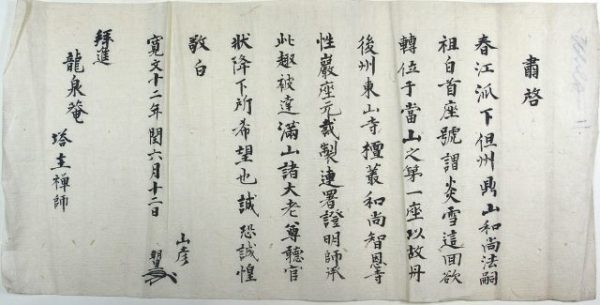 肅啓
春江派下但州鼎山和尚法嗣
祖白首座號謂炎雪這回欲
轉位于當山之第一座以故丹
後州東山寺檀叢和尚智恩寺
性巖座元裁製連署證明師承
此趣被達滿山諸大老尊聽官
狀降下所希望也誠恐誠惶
敬白
寛文十二年閏六月十二日
山彦
拜進
龍泉菴
塔主禪師